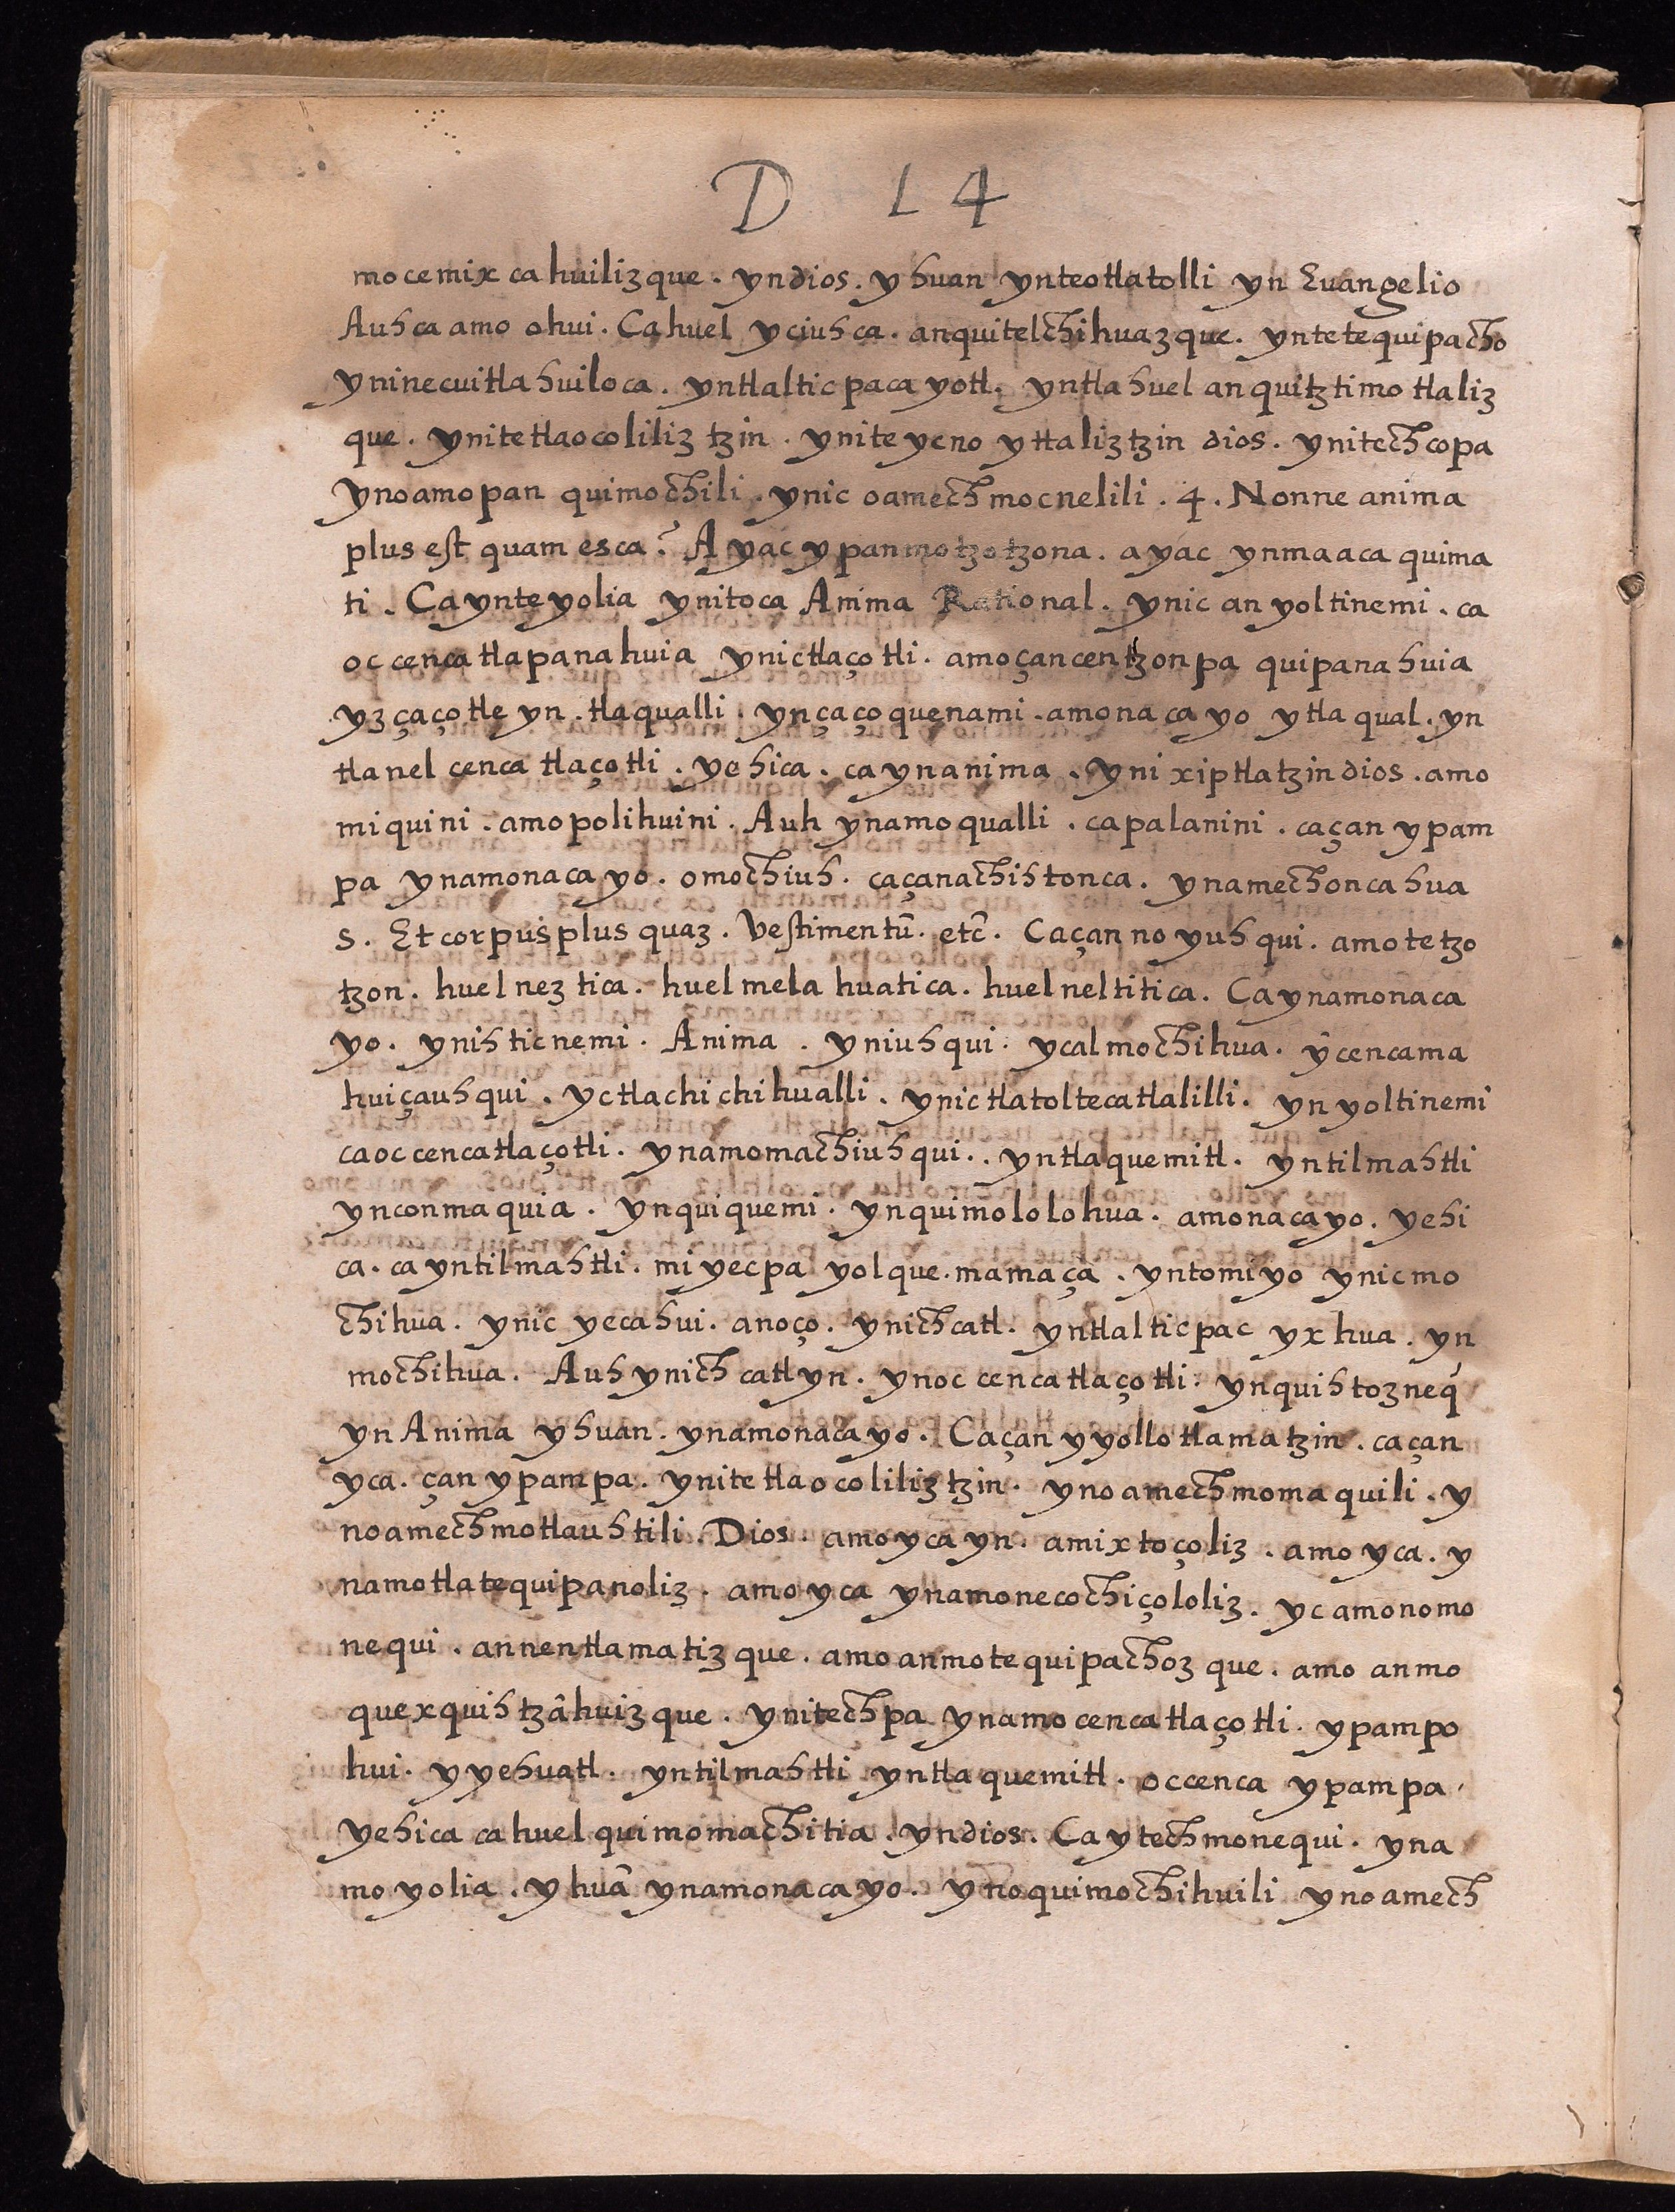 D 14
mocemix ca huilizque. yndios. yhuan ynteotlatolli yn Euangelio
Auhca amo ohui. Cahuel yciuhca. anquitelchihuazque. yntetequipacho
yninecuitlahuiloca. yntlalticpacayotl. yntlahuel anquitztimotlaliz
que. ynitetlaocoliliztzin. yniteycnoyttaliztzin dios. ynitechcopa
ynoamopan quimochili. ynic oamechmocnelili. 4. Nonne anima
plus est quam esca? Ayac ypanmotzotzona. ayac ynmaaca quima
ti. Caynteyolia ynitoca Anima Rational. ynic anyoltinemi. ca
oc cenca tlapanahuia ynictlaçotli. amoçancentzonpa quipanahuia
yz çaçotle yn. tlaqualli. ynçaçoquenami. amonacayo ytlaqual. yn
tlanel cenca tlaçotli. yehica. caynanima. ynixiptlatzindios. amo
miquini. amopolihuini. Auh ynamoqualli. capalanini. caçan ypam
pa ynamonacayo. omochiuh. caçanachihtonca. ynamechoncahua
5. Et corpus plus quaz. Vestimentū. etc̄. Caçan no yuhqui. amotetzo
tzon. huelneztica. huelmelahuatica. huelneltitica. Caynamonaca
yo. ynihticnemi. Anima. yniuhqui. ycalmochihua. ŷcencama
huiçauhqui. yctlachichihualli. ynictlatoltecatlalilli. yn yoltinemi
caoccencatlaçotli. ynamomachiuhqui.. yntlaquemitl. yntilmahtli
ynconmaquia. ynquiquemi. ynquimololohua. amonacayo. yehi
ca. ca yntilmahtli. miyecpa yolque. mamaça. yntomiyo ynicmo
chihua. ynic yecahui. anoço. ynichcatl. yntlalticpac yxhua. yn
mochihua. Auh ynichcatlyn. ynoc cencatlaçotli. ynquihtozneq́
yn Anima yhuan. ynamonacayo. Caçan yyollotlamatzin. caçan
yca. çan ypampa. ynitetlaocoliliztzin. ynoamechmomaquili. y
noamechmotlauhtili. Dios. amoycayn. amixtoçoliz. amo yca. y
namotlatequipanoliz. amoyca ynamonecochiçololiz. yc amonomo
nequi. annentlamatizque. amo anmotequipachozque. amo anmo
quexquihtzâhuizque. ynitechpa ynamocencatlaçotli. ypampo
hui. yyehuatl. yntilmahtli yntlaquemitl. occenca ypampa
yehica cahuelquimomachitia. yndios. Caytechmonequi. yna
moyolia. yhuā ynamonacayo. ynoquimochihuili ynoamech